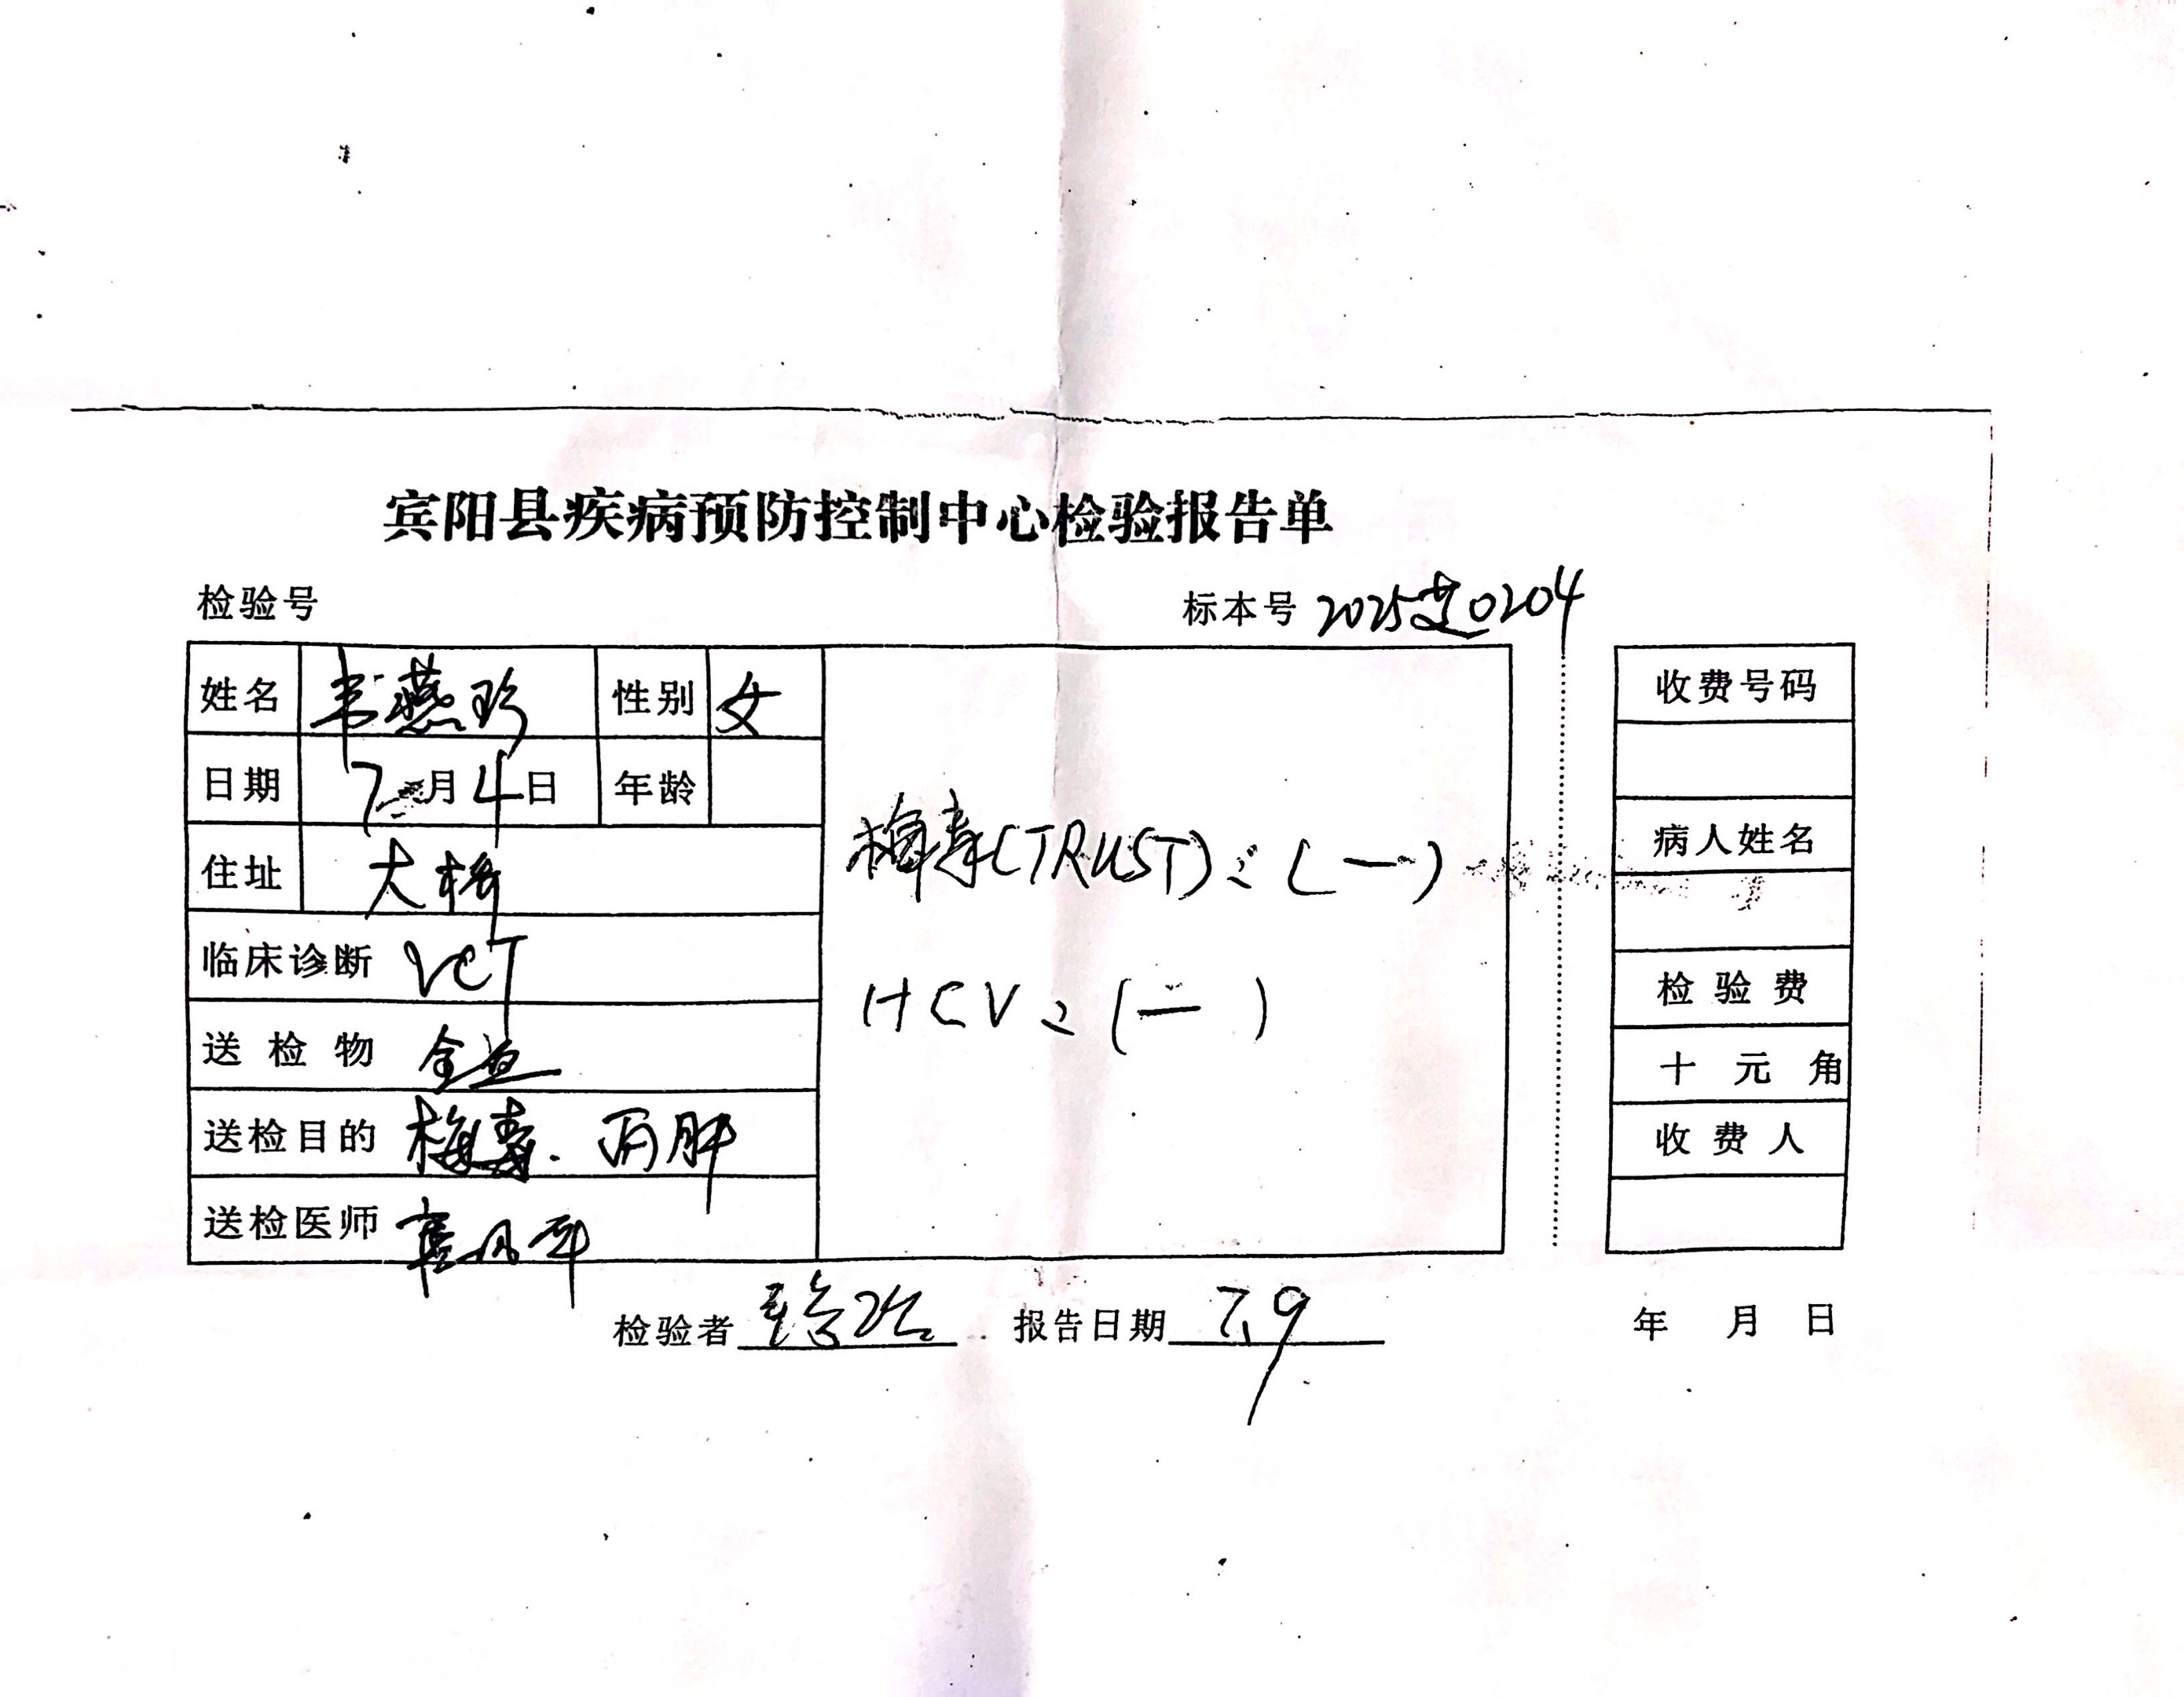 宾阳县疾病预防控制中心检验报告单
检验号 标本号 2025艾0204
姓名 韦燕珍 性别 女
日期 7月4日 年龄
住址 大桥
临床诊断 VCT
送检物 全血
送检目的 梅毒.丙肝
送检医师
梅毒(TRUST):(一)
HCV:(一)
检验者 报告日期 7.9
收费号码
病人姓名
检验费
十元角
收费人
年月日